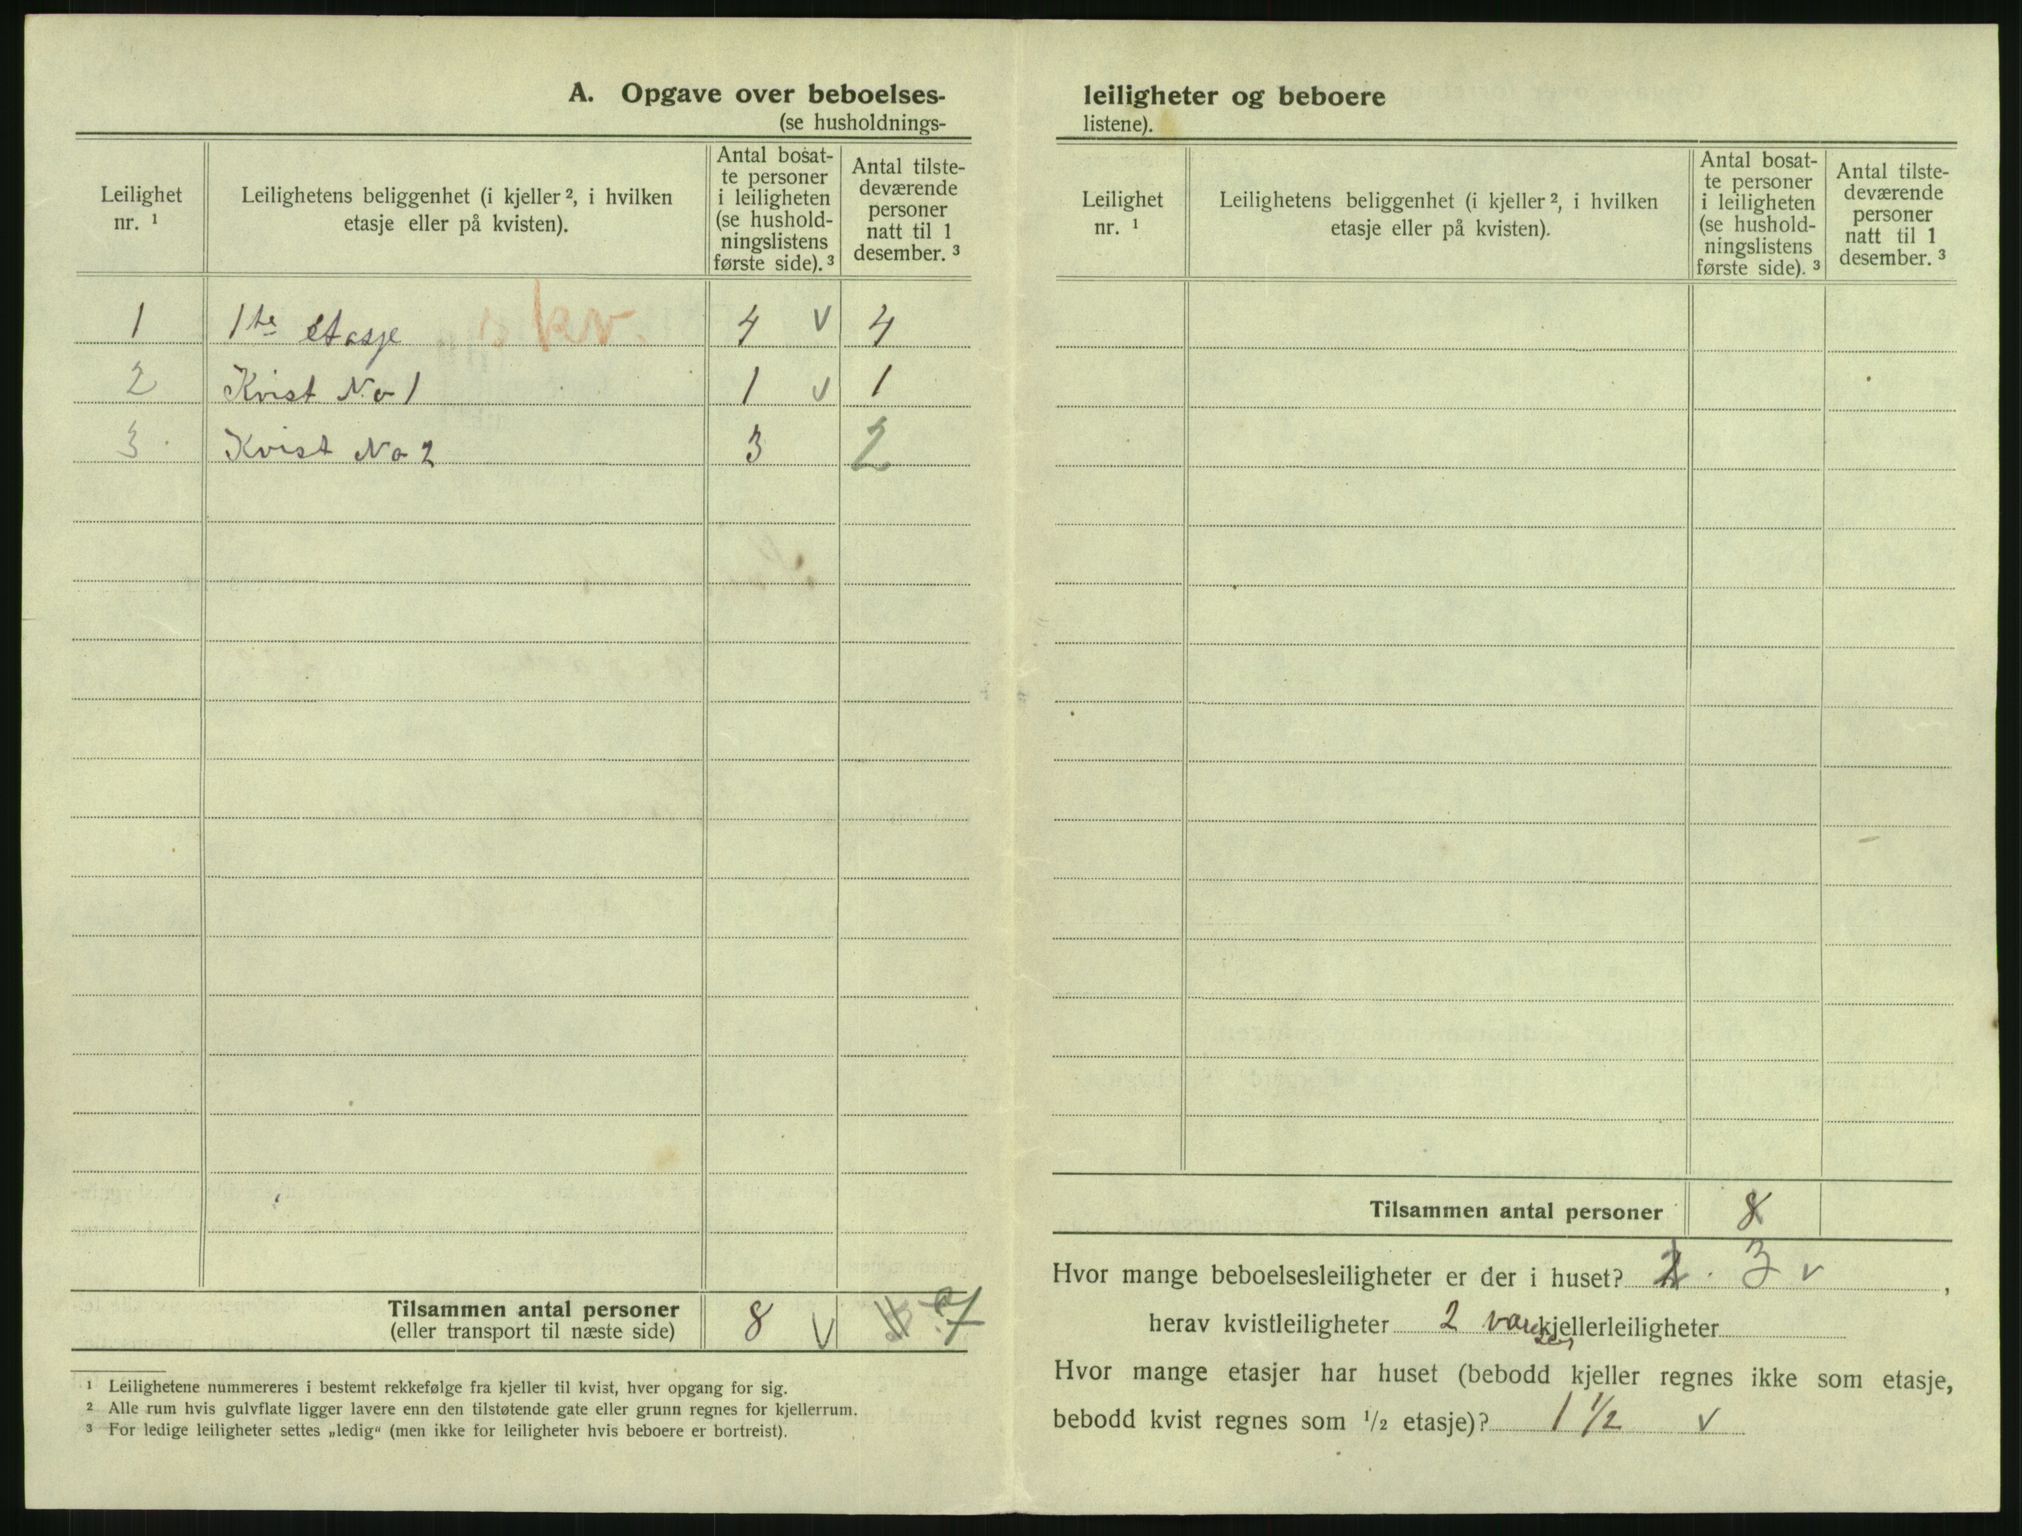 A. Opgave over beboelses-
(se husholdnings-
Leilighet
nr. ¹
Leilighetens beliggenhet (i kjeller ², i hvilken
etasje eller på kvisten).
Antal bosat-
te personer
i leiligheten
(se hushold-
ningslistens
første side). ³
Antal tilste-
deværende
personer
natt til 1
desember. ³
1 1te etasje kv. 4 v 4
2 Kvist No 1 1 v 1
3 Kvist No 2 3 2
Tilsammen antal personer
(eller transport til næste side) 8 v 7
¹ Leilighetene nummereres i bestemt rekkefølge fra kjeller til kvist, hver opgang for sig.
² Alle rum hvis gulvflate ligger lavere enn den tilstøtende gate eller grunn regnes for kjellerrum.
³ For ledige leiligheter settes „ledig“ (men ikke for leiligheter hvis beboere er bortreist).
leiligheter og beboere
listene).
Leilighet
nr. ¹
Leilighetens beliggenhet (i kjeller ², i hvilken
etasje eller på kvisten).
Antal bosat-
te personer
i leiligheten
(se hushold-
ningslistens
første side). ³
Antal tilste-
deværende
personer
natt til 1
desember. ³
Tilsammen antal personer 8
Hvor mange beboelsesleiligheter er der i huset? 3 v ,
herav kvistleiligheter 2 kjellerleiligheter
Hvor mange etasjer har huset (bebodd kjeller regnes ikke som etasje,
bebodd kvist regnes som ½ etasje)? 1 ½ v